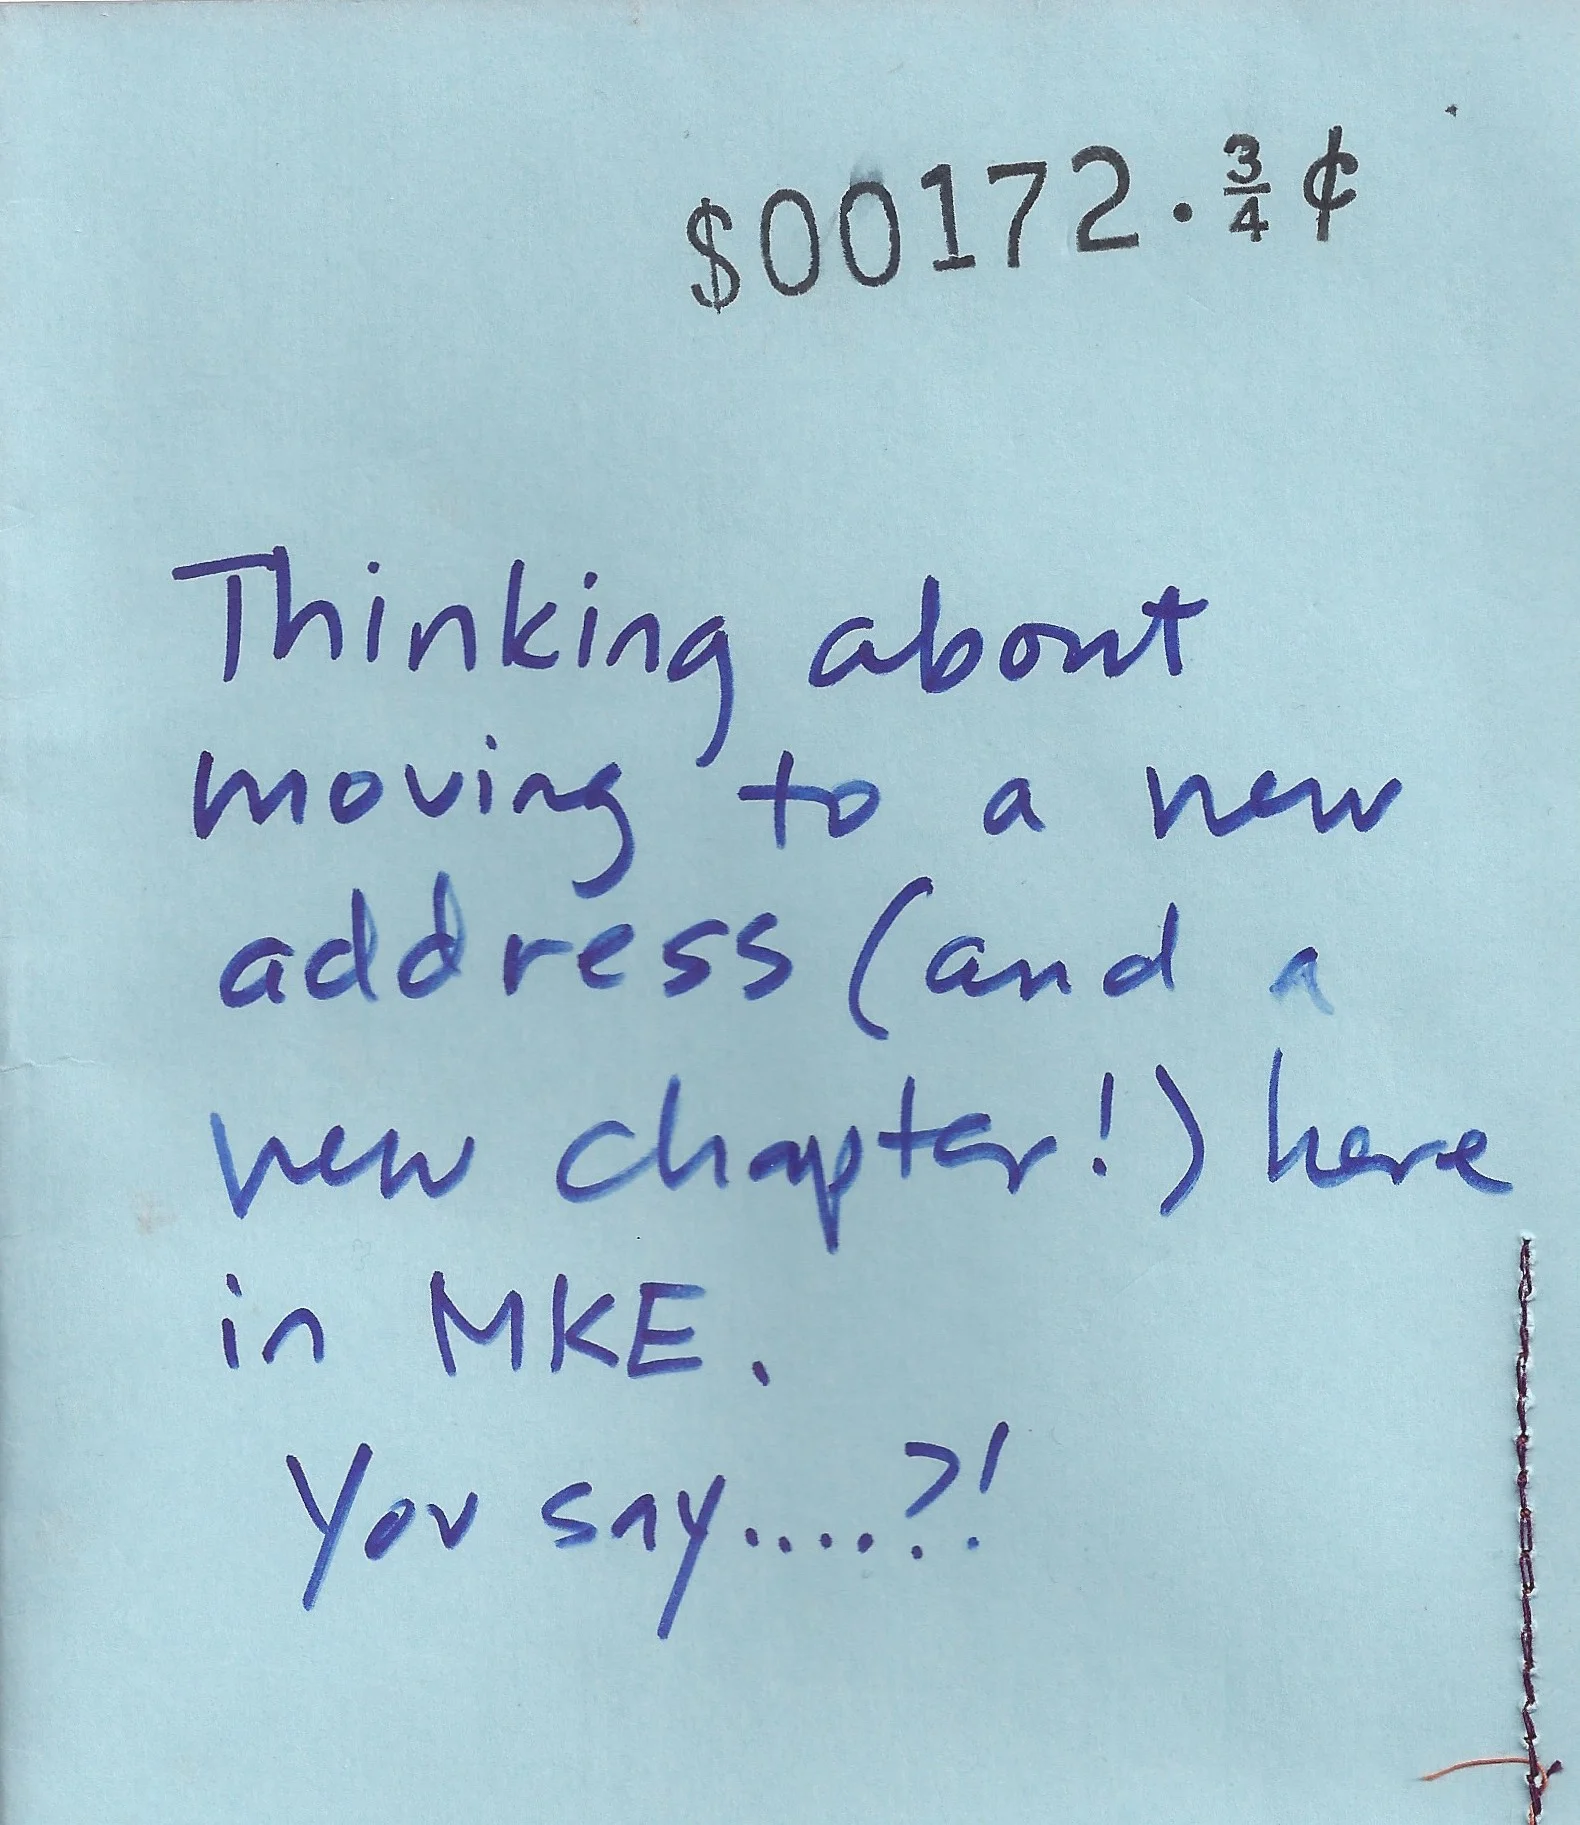 $00172.¾¢
Thinking about
moving to a new
address (and a
new chapter!) here
in MKE.
You say....?!